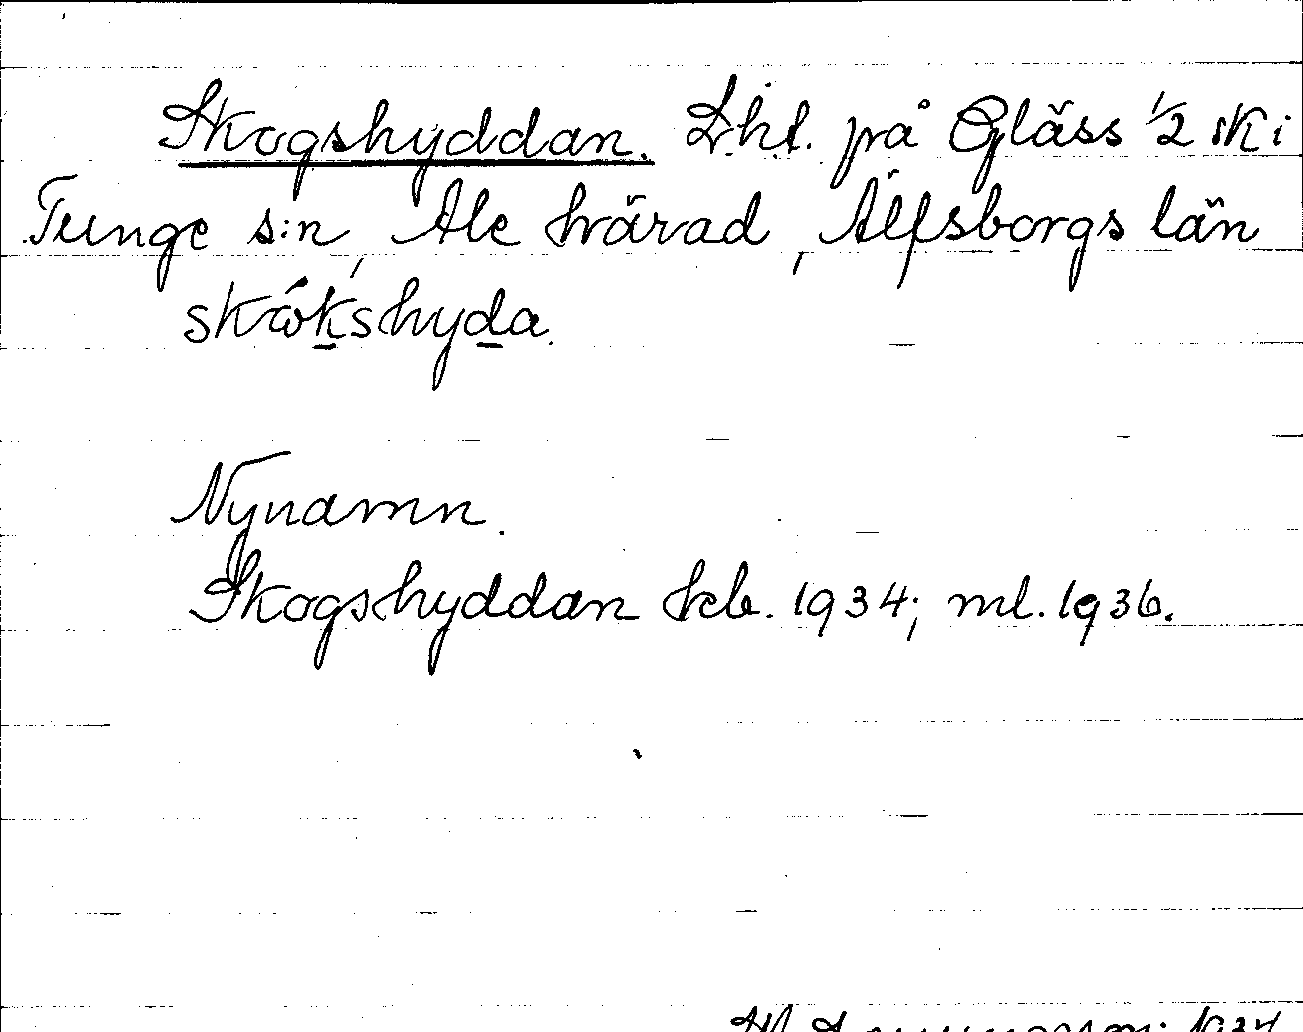 Skogshyddan. Lht. på Gläss 1/2 sk i
Tunge s:n, Ale härad, Älfsborgs län
skókshyda.
Nynamn.
Skogshyddan kb. 1934; ml. 1936.